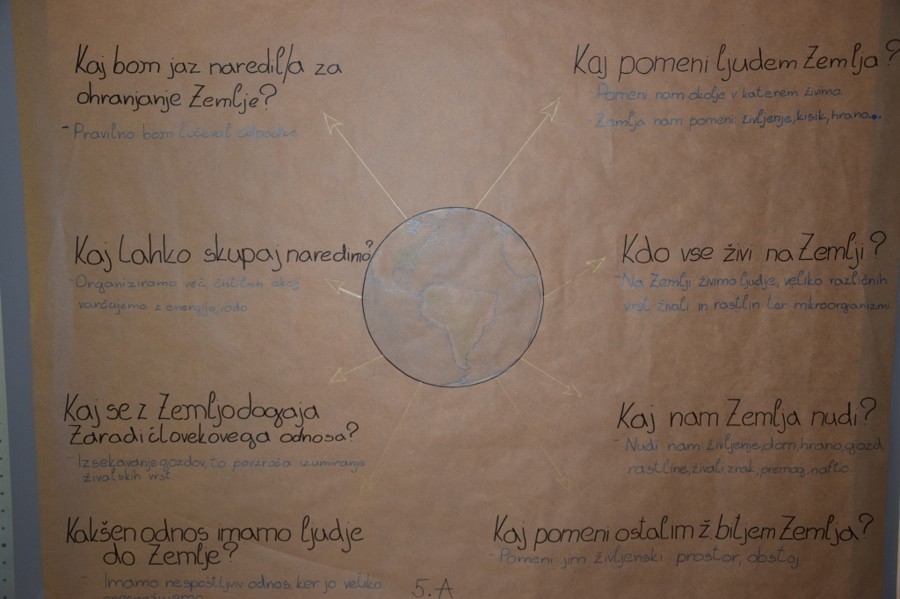 Kaj bom jaz naredil/a za
ohranjanje Zemlje?
- Pravilno bom ločeval odpadke
Kaj pomeni ljudem Zemlja?
- Pomeni nam okolje v katerem živimo
- Zemlja nam pomeni: življenje, kisik, hrano...
Kaj Lahko skupaj naredimo?
- Organiziramo več čistilnih akcij
varčujemo z energijo, vodo
Kdo vse živi na Zemlji?
- Na Zemlji živimo ljudje, veliko različnih
vrst živali in rastlin ter mikroorganizmi
Kaj se z Zemljo dogaja
Zaradi človekovega odnosa?
- Izsekavanje gozdov, to povzroča izumiranje
živalskih vrst
Kaj nam Zemlja nudi?
- Nudi nam: življenje, dom, hrano, gozd,
rastline, živali zrak, premog, nafto
Kakšen odnos imamo ljudje
do Zemlje?
- Imamo nespoštljiv odnos, ker jo veliko
Kaj pomeni ostalim ž. bitjem Zemlja?
- Pomeni jim življenski prostor, obstoj
5.A